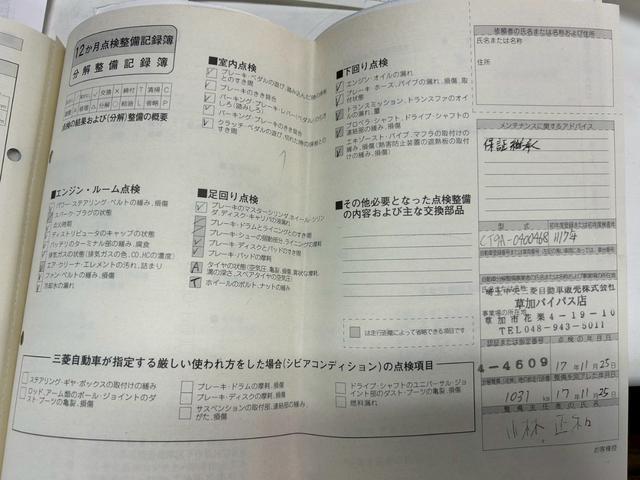 12か月点検整備記録簿
分解整備記録簿
点検の結果および(分解)整備の概要
■室内点検
ブレーキ・ペダルの遊び、踏み込んだ時の床板とのすき間
ブレーキのきき具合
パーキング・ブレーキ・レバー(ペダル)の引きしろ(踏みしろ)
パーキング・ブレーキのきき具合
クラッチ・ペダルの遊び、切れた時の床板とのすき間
■下回り点検
エンジン・オイルの漏れ
ブレーキ ホース、パイプの漏れ、損傷、取付状態
トランスミッション、トランスファのオイルの漏れ、量
プロペラ・シャフト、ドライブ・シャフトの連結部の緩み
エキゾースト・パイプ、マフラの取付けの緩み、損傷(熱害防止装置の遮熱板の取付けの緩み、損傷)
■エンジン・ルーム点検
パワー・ステアリング・ベルトの緩み、損傷
スパーク・プラグの状態
点火時期
ディストリビュータのキャップの状態
バッテリのターミナル部の緩み、腐食
排気ガスの状態(排気ガスの色、CO、HCの濃度)
エア・クリーナ・エレメントの汚れ、詰まり
ファン・ベルトの緩み、損傷
冷却水の漏れ
■足回り点検
ブレーキのマスターシリンダ、ホイール・シリンダ、ディスク・キャリパの液漏れ
ブレーキ・ドラムとライニングとのすき間
ブレーキ・シューの摺動部分、ライニングの摩耗
ブレーキ・ディスクとパッドのすき間
ブレーキ・パッドの摩耗
A タイヤの状態(空気圧、亀裂、損傷、異状な摩耗、溝の深さ、スペアタイヤの空気圧)
T ホイールのボルト、ナットの緩み
■その他必要となった点検整備の内容および主な交換部品
は走行距離によって省略できる項目です
三菱自動車が指定する厳しい使われ方をした場合(シビアコンディション)の点検項目
ステアリング・ギヤ・ボックスの取付けの緩み
ロッド、アーム類のボール・ジョイントのダスト・ブーツの亀裂、損傷
ブレーキ・ドラムの摩耗、損傷
ブレーキ・ディスクの摩耗、損傷
サスペンションの取付部、連結部の緩み、がた、損傷
ドライブ・シャフトのユニバーサル・ジョイント部のダスト・ブーツの亀裂、損傷
燃料漏れ
依頼者の氏名または名称および住所
氏名または名称
住所
メンテナンスに関するアドバイス
保証継承
型式
CT9A-0400468
三菱自動車販売株式会社
草加バイパス店
草加市花栗4-19-10
TEL048-943-5011
4-4609
17年11月25日
1031 km
17年11月25日
整備主任者の氏名
小林 正和
お客様控